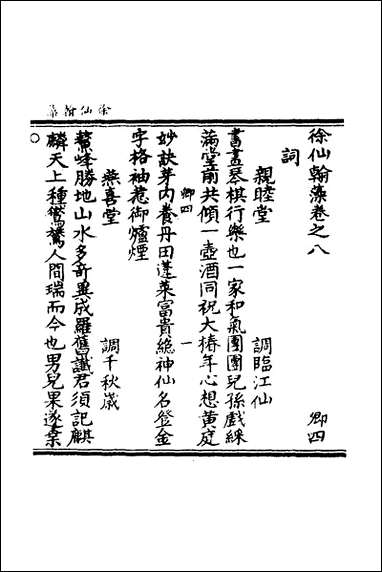 徐仙翰藻
徐仙翰藻卷之八
卿四
詞
親睦堂
調臨江仙
書畫琴棋行樂也一家和氣團團兒孫戲綵
滿堂前共傾一壺酒同祝大椿年心想黃庭
卿四
一
妙訣芽內養丹田蓬萊冨貴総神仙名登金
字格袖惹御爐煙
燕喜堂
調千秋歲
鰲峰勝地山水多奇異成羅舊讖君須記麒
麟天上種鸑鷟人間瑞而今也男兒果遂棄